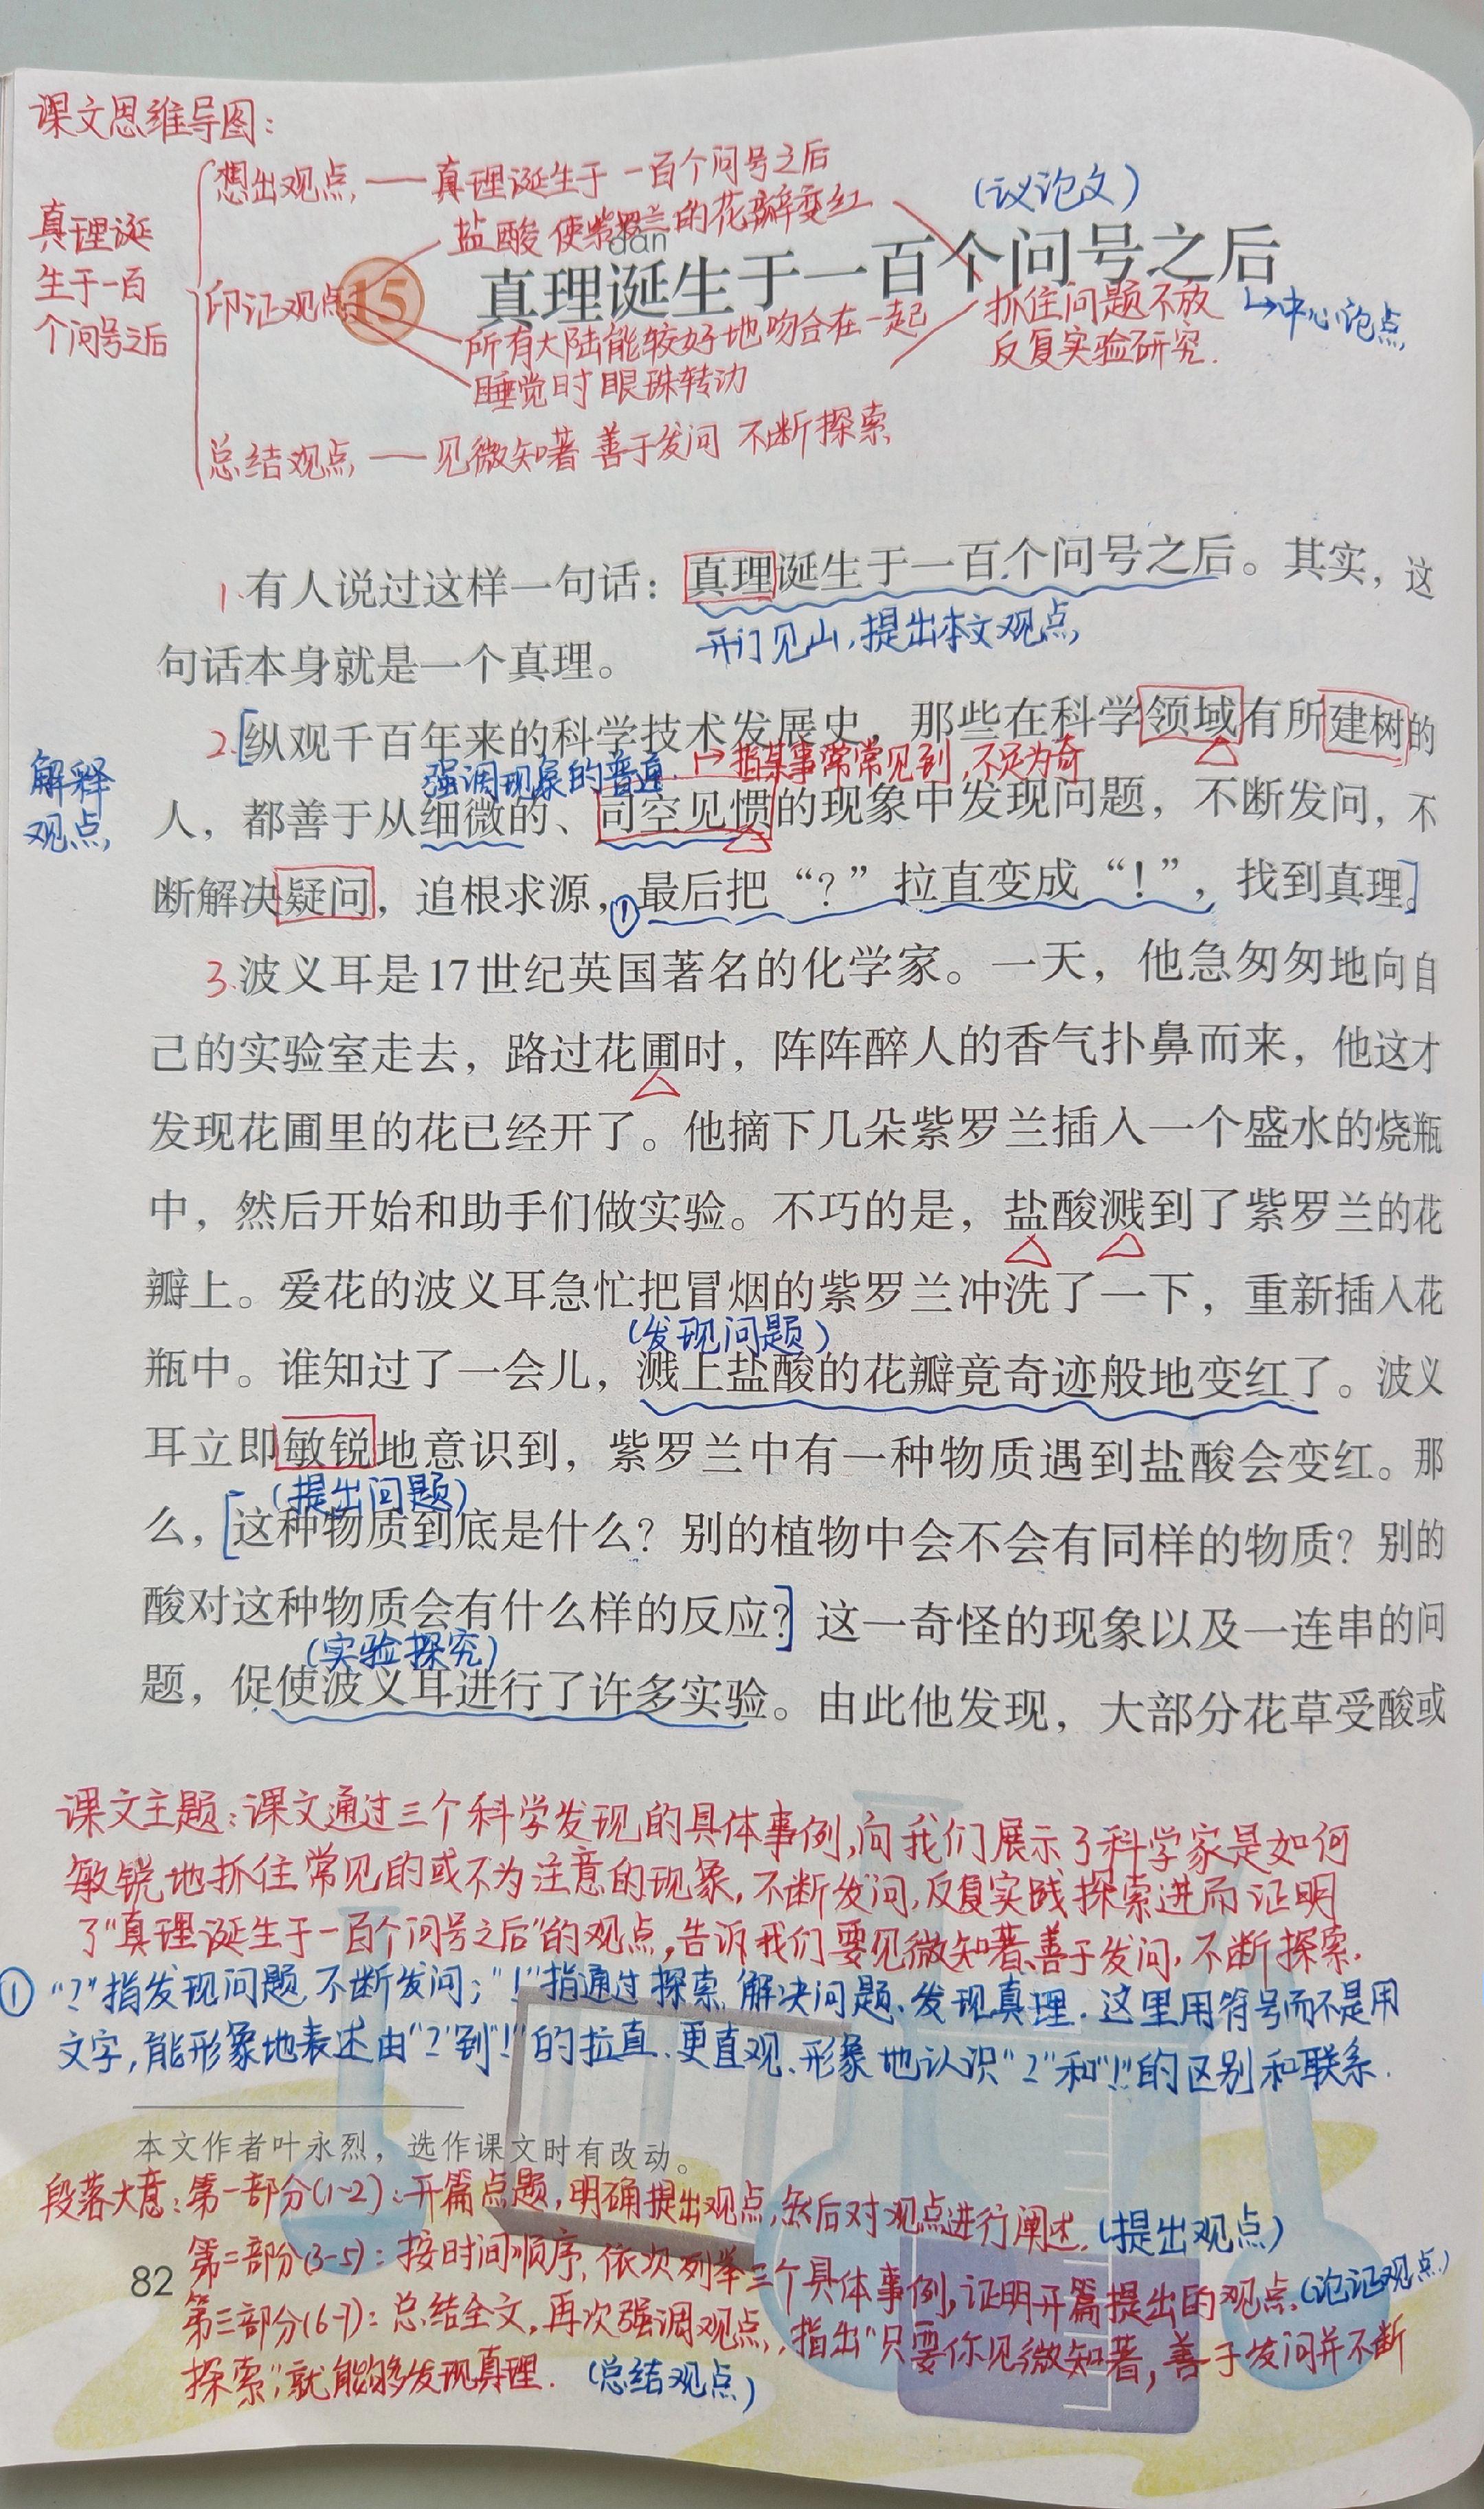 课文思维导图：
真理诞
生于一百
个问号之后
想出观点 —— 真理诞生于一百个问号之后
(议论文)
盐酸使紫罗兰的花瓣变红
dàn
15 真理诞生于一百个问号之后
印证观点
抓住问题不放
反复实验研究.
中心论点
所有大陆能较好地吻合在一起
睡觉时眼珠转动
总结观点 —— 见微知著 善于发问 不断探索
1.有人说过这样一句话：真理诞生于一百个问号之后。其实，这
开门见山,提出本文观点
句话本身就是一个真理。
2.[纵观千百年来的科学技术发展史，那些在科学领域有所建树的
解释
观点
强调现象的普遍.
指某事常常见到,不足为奇
人，都善于从细微的、司空见惯的现象中发现问题，不断发问，不
断解决疑问，追根求源，①最后把“？”拉直变成“！”，找到真理。]
3.波义耳是17世纪英国著名的化学家。一天，他急匆匆地向自
己的实验室走去，路过花圃时，阵阵醉人的香气扑鼻而来，他这才
发现花圃里的花已经开了。他摘下几朵紫罗兰插入一个盛水的烧瓶
中，然后开始和助手们做实验。不巧的是，盐酸溅到了紫罗兰的花
瓣上。爱花的波义耳急忙把冒烟的紫罗兰冲洗了一下，重新插入花
(发现问题)
瓶中。谁知过了一会儿，溅上盐酸的花瓣竟奇迹般地变红了。波义
耳立即敏锐地意识到，紫罗兰中有一种物质遇到盐酸会变红。那
(提出问题)
么，[这种物质到底是什么？别的植物中会不会有同样的物质？别的
酸对这种物质会有什么样的反应？]这一奇怪的现象以及一连串的问
(实验探究)
题，促使波义耳进行了许多实验。由此他发现，大部分花草受酸或
课文主题：课文通过三个科学发现的具体事例,向我们展示了科学家是如何
敏锐地抓住常见的或不为注意的现象,不断发问,反复实践探索进而证明
了“真理诞生于一百个问号之后”的观点,告诉我们要见微知著、善于发问,不断探索.
① “？”指发现问题、不断发问；“！”指通过探索、解决问题、发现真理.这里用符号而不是用
文字,能形象地表述由“？”到“！”的拉直、更直观、形象地认识“？”和“！”的区别和联系.
本文作者叶永烈，选作课文时有改动。
段落大意：第一部分(1~2)：开篇点题,明确提出观点,然后对观点进行阐述.(提出观点)
第二部分(3-5)：按时间顺序,依次列举三个具体事例,证明开篇提出的观点.(论证观点)
82
第三部分(6-7)：总结全文,再次强调观点,指出“只要你见微知著,善于发问并不断
探索”,就能够发现真理. (总结观点)